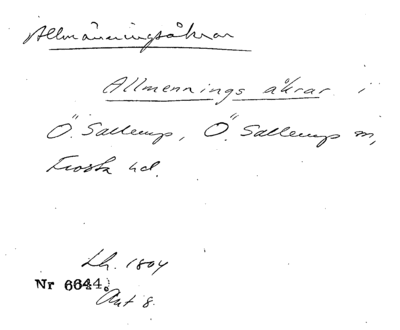 Allmänningsåkrar
Allmennings åkrar i
Ö. Sallerup, Ö. Sallerup sn,
Frosta hd.
Lh. 1804
Nr 6644.
Ant 8.